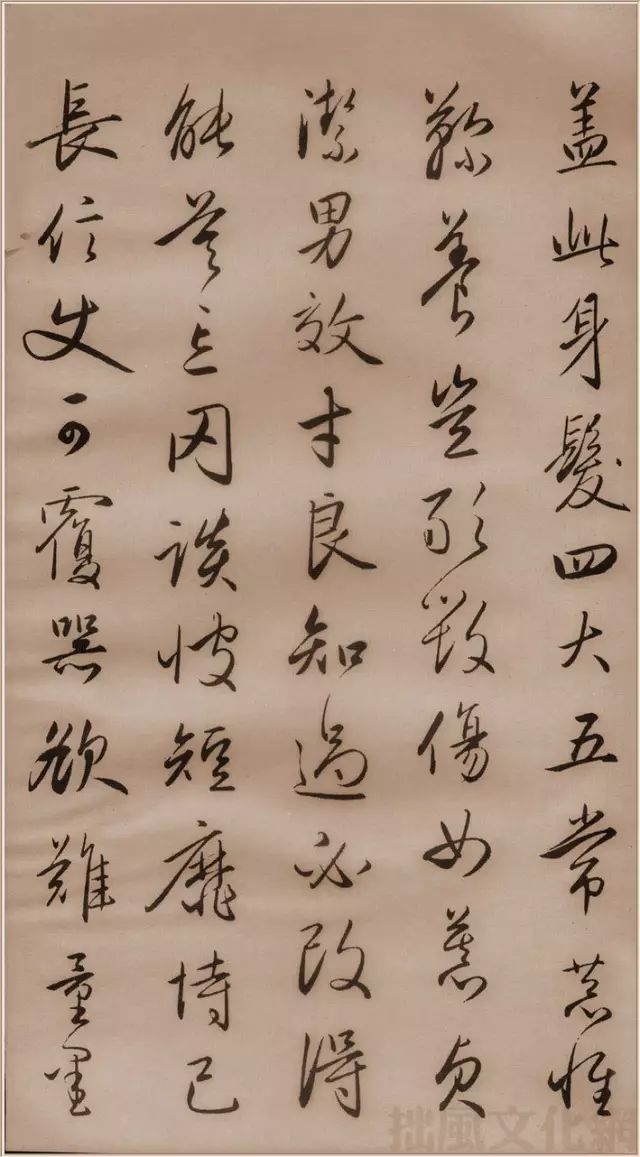 蓋此身髮四大五常恭惟
鞠養豈敢毀傷女慕貞
潔男效才良知過必改得
能莫忘罔談彼短靡恃己
長信使可覆器欲難量墨
拙風文化網